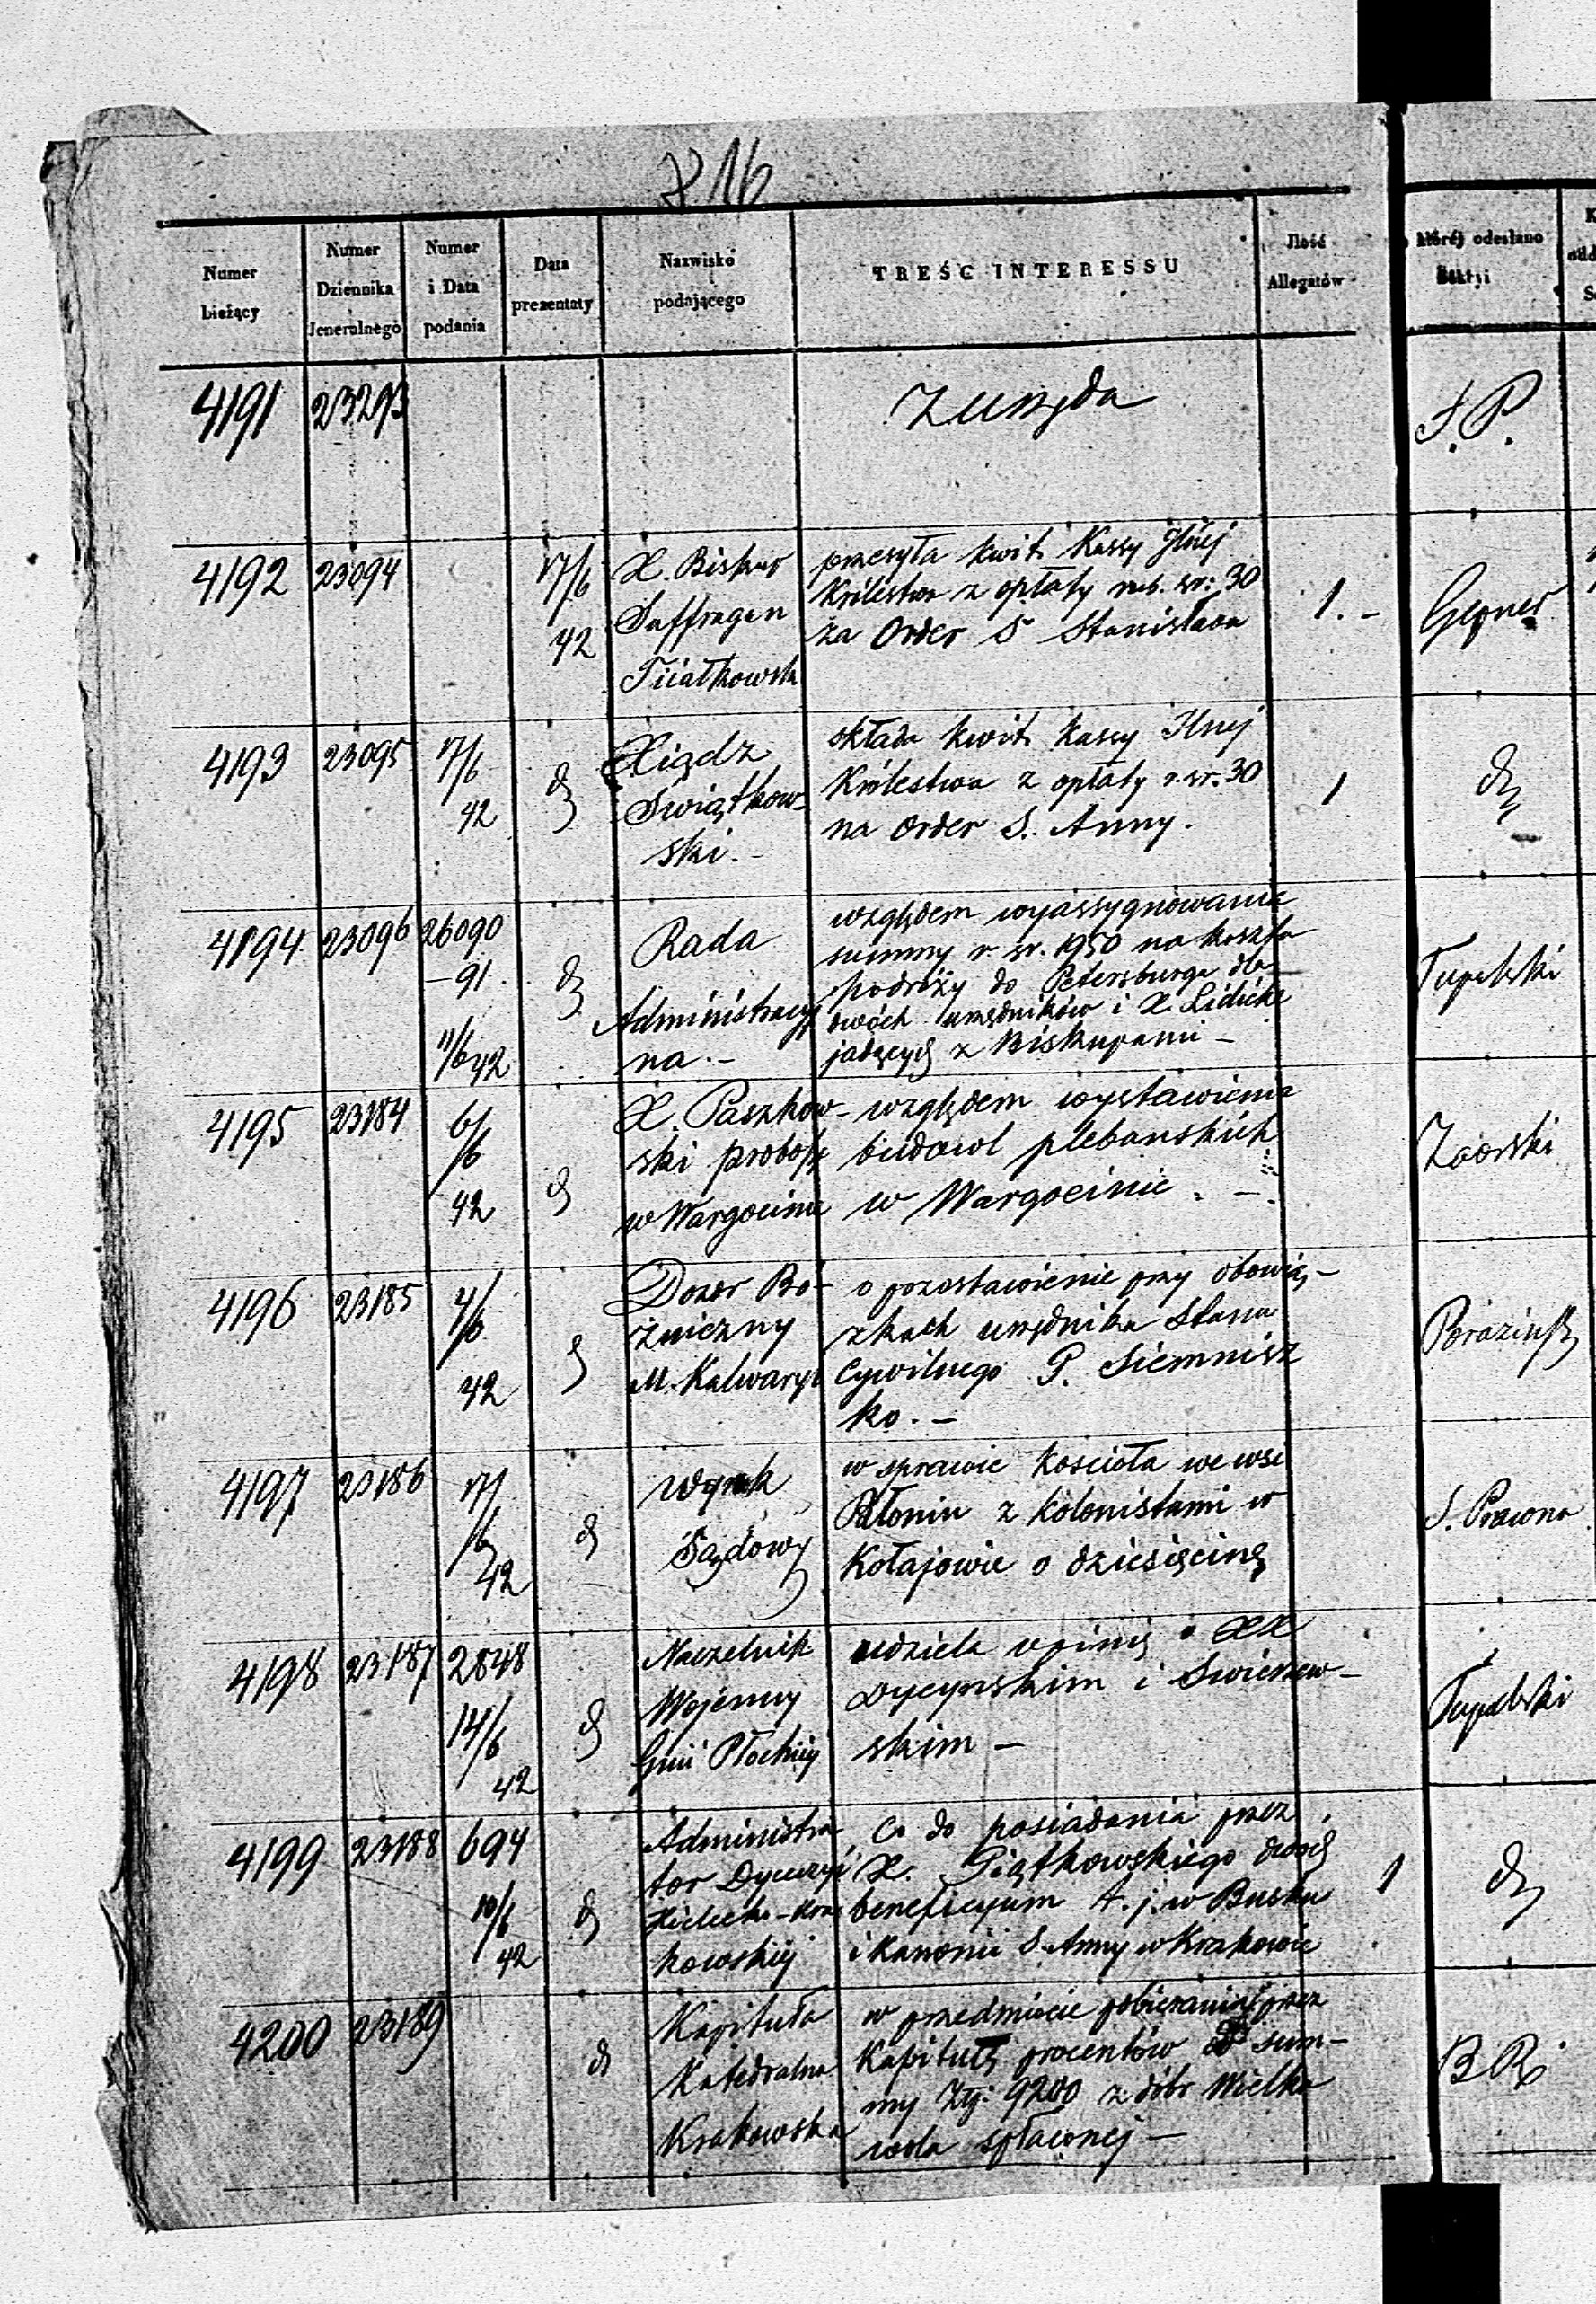 816
Numer bieżący
Numer Dziennika Jeneralnego
Numer i Data podania
Data prezentaty
Nazwisko podającego
TREŚĆ INTERESSU
Ilość Allegatów
której odesłano Sekcyi
4191 23293 Z urzęda S. P.
4192 23094 17/6 42
X. Biskup
Suffragan
przesyła kwit Kassy Głnej
Królestwa z opłaty rub. sr: 30
za Order S Stanisława
1. –
Gepner
4193 23095 17/6 42
Xiądz
Świątkow-
ski. –
składa kwit Kassy Głnej
Królestwa z opłaty r. sr. 30
na order S. Anny.
1
4194 23096 26090
– 91.
11/6 42
Rada
Administracyj
na. –
względem wyassygnowania
summy r. sr. 1950 na koszta
podróży do Petersburga dla
dwóch urzędników i X.
jadących z Biskupami –
Tupalski
4195 23184 6/6 42
X. Paszkow-
ski proboszcz
w Wargocinie
względem wystawienia
budowl plebanskich
w Wargocinie. –
Zaorski
4196 23185 4/6 42
Dozór Bó-
żniczny
M. Kalwaryi
o pozostawienie przy obowią-
zkach urzędnika Stanu
Cywilnego P. Siemnisz
ko. –
4197 23186 17/6 42
Wyrok
Sądowy
w sprawie Kościoła we wsi
z kolonistami w
Kołajowie o dziesięcinę
S. Prawna
4198 23187 2848
14/6 42
Naczelnik
Wojenny
Gnii Płockiej
udziela opinię o XX
i Swieszew-
skim –
Tupalski
4199 23188 694
10/6 42
Administra
tor Dyecezyi
Kielecko-Kra
kowskiej
Co do posiadania przez
X. Piątkowskiego dwóch
beneficyum t. j. w Busku
i Kanonii S. Anny w Krakowie
1
4200 23189
Kapituła
Katedralna
Krakowska
w przedmiocie pobierania przez
Kapitułę procentów od sum-
my Złp: 9200 z dóbr Wielka
wola spławnej –
B R.